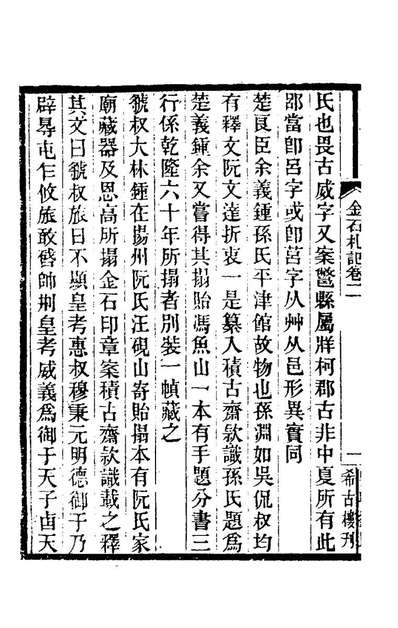 金石札記卷二
一
希古樓刊
氏也畏古威字又案鄨縣屬牂柯郡古非中夏所有此
邵當卽呂字或卽莒字从艸从邑形異實同
楚良臣余義鍾孫氏平津館故物也孫淵如吳侃叔均
有釋文阮文達折衷一是纂入積古齋款識孫氏題爲
楚義鍾余又嘗得其搨貽馮魚山一本有手題分書三
行係乾隆六十年所搨者別裝一幀藏之
虢叔大林鍾在揚州阮氏汪硯山寄貽搨本有阮氏家
廟藏器及恩高所搨金石印章案積古齋款識載之釋
其文曰虢叔旅曰不顯皇考惠叔穆秉元明德御于乃
辟㝵屯乍攸旅敢啓帥刑皇考威義爲御于天子卣天